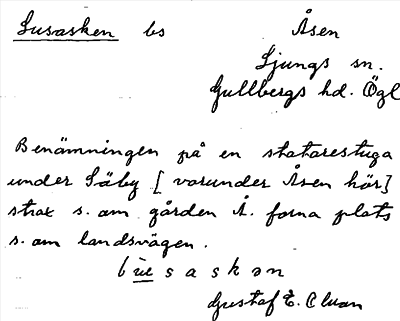 Lusasken bs Åsen
Ljungs sn.
Gullbergs hd. Ögl
Benämningen på en statarestuga
under Säby [varunder Åsen hör]
strax s. om gården Å. forna plats
s. om landsvägen.
saskən
Gustaf E.